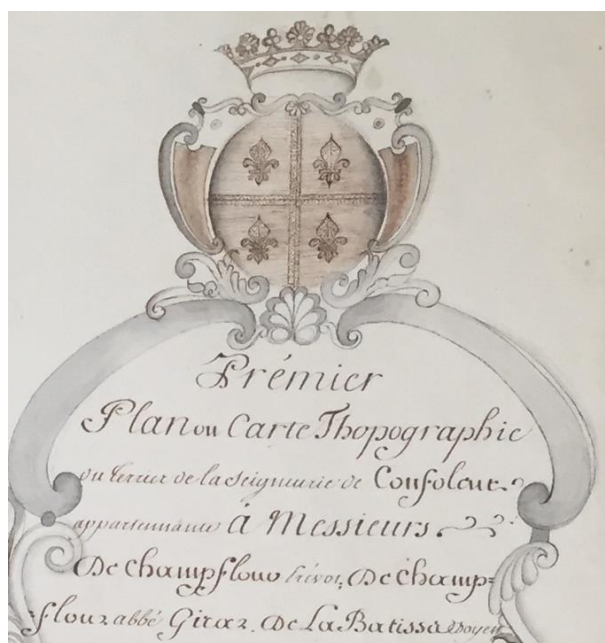 Prémier
Plan ou Carte Thopographic
du terrier de la seigneurie de Confolent
appartenante à Messieurs
De champflour Prévot, De champ=
flour abbé Girar. De La Batisse Doyen